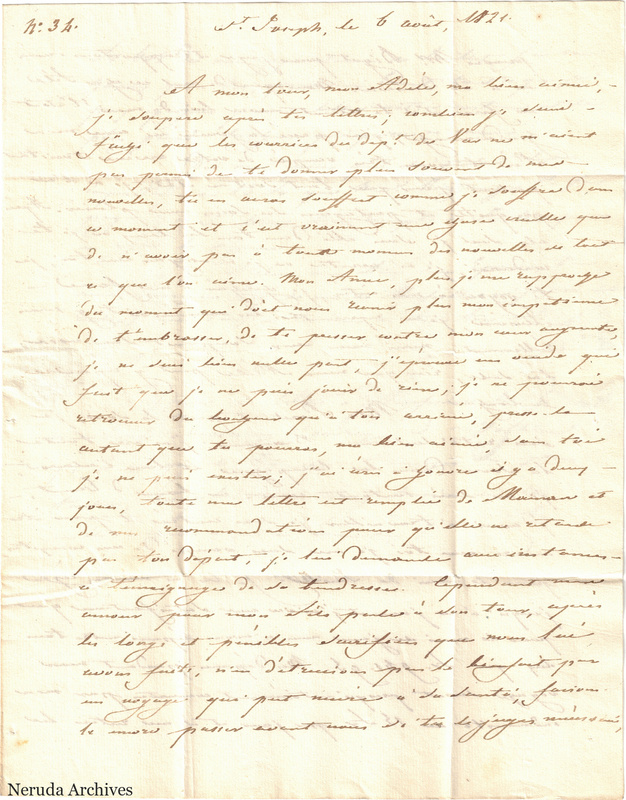 N.º 34.
St Joseph, le 6 août, 1821.
A mon tour, mon Adèle, ma bien aimée,
je soupire après tes lettres; combien je suis
fâché que les courriers du dépt. du Var ne m'aient
pas permis de te donner plus souvent de mes
nouvelles, tu en auras souffert comme je souffre dans
ce moment et c'est vraiment une chose cruelle que
de n'avoir pas à tout moment des nouvelles de tout
ce que l'on aime. Mon Amie, plus je me rapproche
du moment qui doit nous réunir plus mon impatience
de t'embrasser, de te presser contre mon cœur augmente,
je ne suis bien nulle part, j'éprouve un vuide qui
fait que je ne puis jouir de rien; je ne pourrai
retrouver du bonheur qu'à ton arrivée, presse-la
autant que tu pourras, ma bien aimée, sans toi
je ne puis exister; j'ai écrit à il y a deux
jours, toute ma lettre est remplie de Maman et
de mes recommandations pour qu'elle ne retarde
pas ton départ, je lui demande avec instance
ce témoignage de sa tendresse. Cependant mon
amour pour mon fils parle à son tour, après
les longs et pénibles sacrifices que nous lui
avons faits, n'en détruisons pas le bienfait par
un voyage qui peut nuire à sa santé, faisons
le encore passer avant nous si tu le juges nécessaire,
Neruda Archives